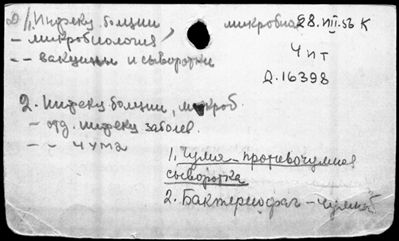 1. Инфекц. болезни микробная 28.VIII.56 К
– микробиология
– – вакцины и сыворотки
Ч ит
Д.16398
2. Инфекц. болезни, микроб.
– отд. инфекц. заболев.
– – чума
1. Чума – противочумная
сыворотка
2. Бактериофаг – чумной